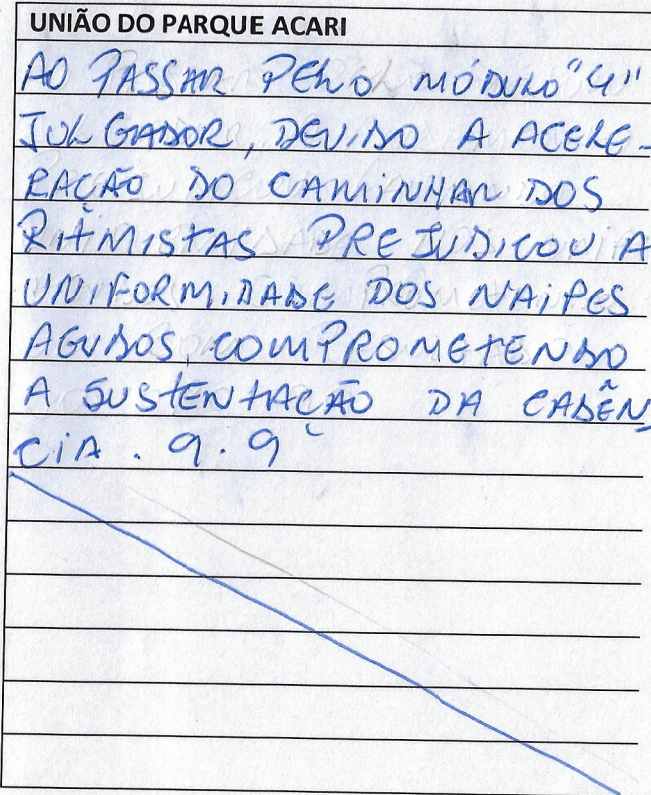 UNIÃO DO PARQUE ACARI
AO PASSAR PELO MÓDULO "4"
JULGADOR, DEVIDO A ACELE-
RAÇÃO DO CAMINHAR DOS
RITMISTAS PREJUDICOU A
UNIFORMIDADE DOS NAIPES
AGUDOS, COMPROMETENDO
A SUSTENTAÇÃO DA CADÊN
CIA. 9.9